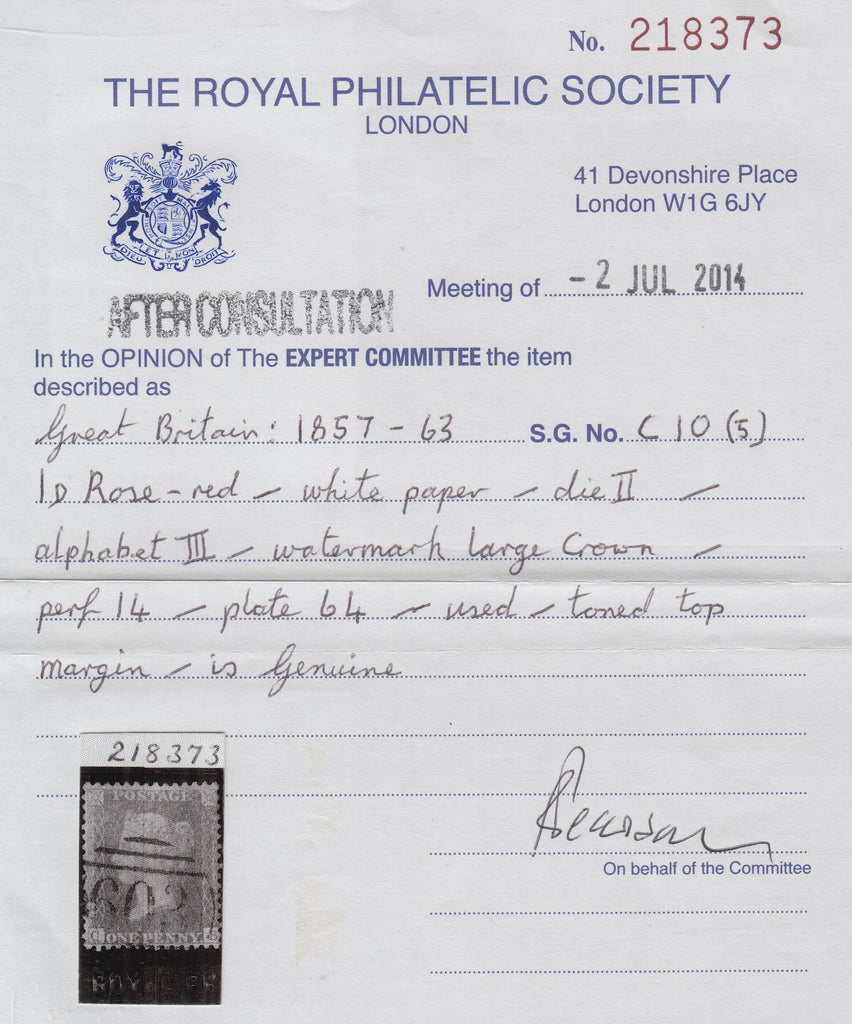 No. 218373
THE ROYAL PHILATELIC SOCIETY
LONDON
41 Devonshire Place
London W1G 6JY
DIEU ET MON DROIT
Meeting of - 2 JUL 2014
AFTER CONSULTATION
In the OPINION of The EXPERT COMMITTEE the item
described as
Great Britain: 1857 - 63 S.G. No. C 10 (5)
1D Rose-red - white paper - die II -
alphabet III - watermark large Crown -
perf 14 - plate 64 - used - toned top
margin - is Genuine
218373
POSTAGE
ONE PENNY
On behalf of the Committee